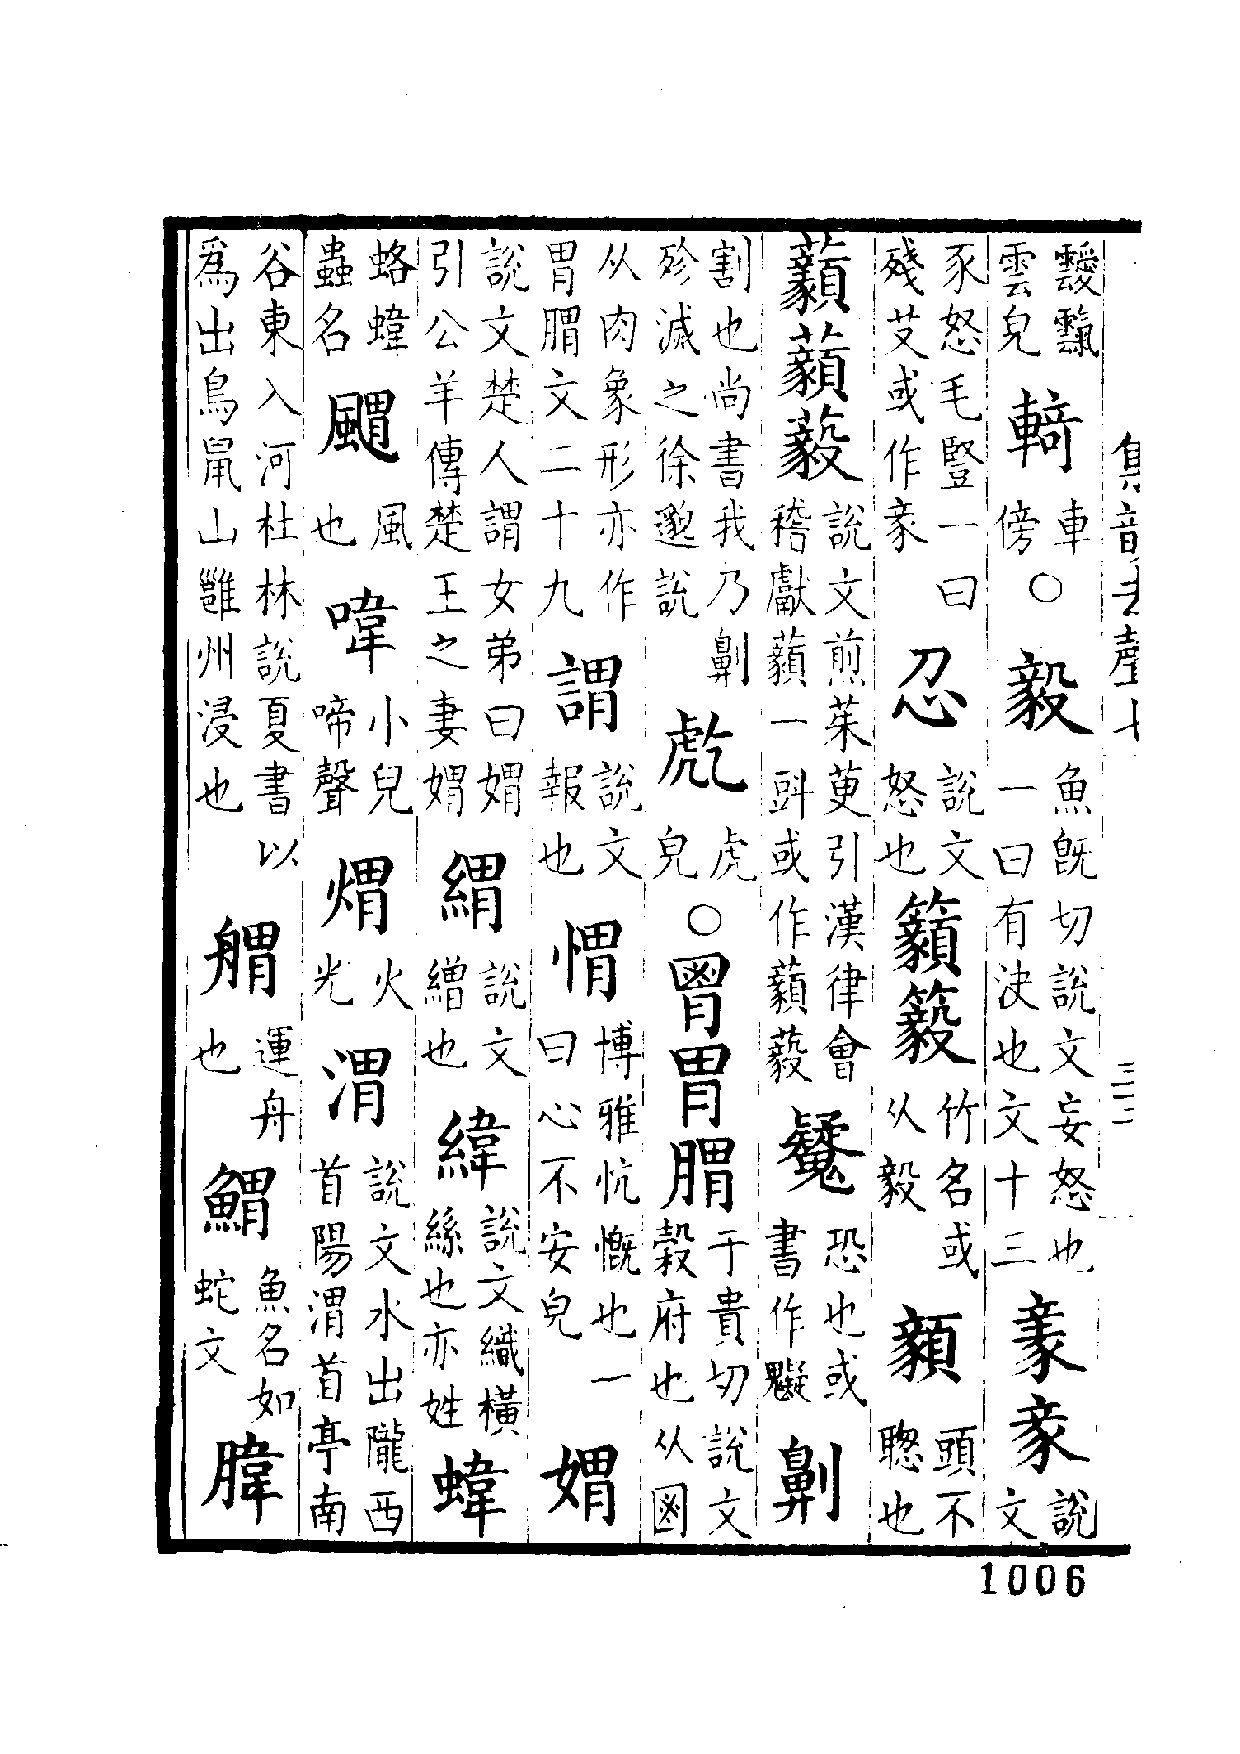 靉雲皃輢車傍○毅魚旣切說文妄怒也一曰有決也文十三豙說文
豕怒毛豎一曰殘艾或作豙說文怒也竹名或从毅顡頭不聰也
藙說文煎茱萸引漢律會稽獻一㪷或作藙恐也或書作劓
割也尚書我乃劓殄滅之徐邈說虎皃○胃于貴切說文穀府也从
从肉象形亦作胃文二十九謂說文報也㥜博雅忼慨也一曰心不安皃媦
說文楚人謂女弟曰媦引公羊傳楚王之妻媦緭說文繒也緯說文織橫絲也亦姓
蛒蟲名風也喡小兒啼聲煟火光渭說文水出隴西首陽渭首亭南
谷東入河杜林說夏書以爲出鳥鼠山雝州浸也運舟也魚名如蛇文
集韻去聲七
1006